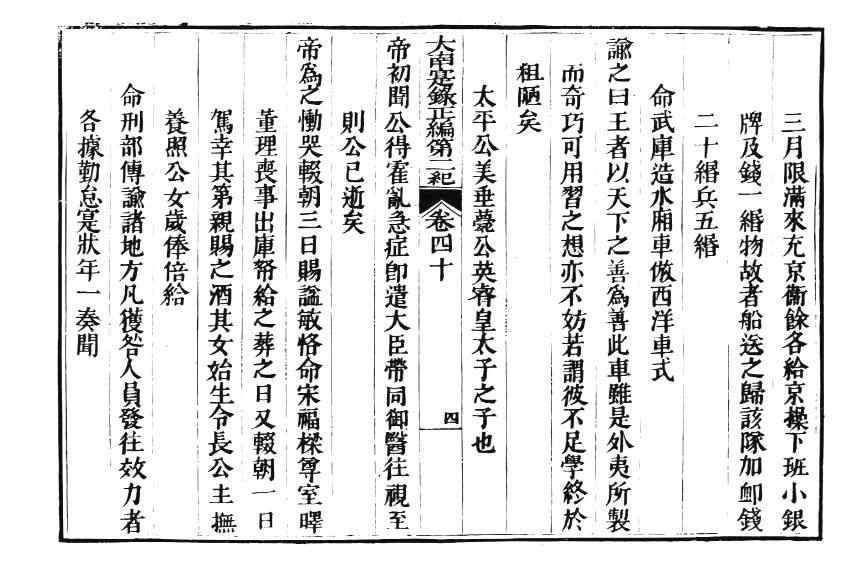 三月限滿來充京衞餘各給京操下班小銀
牌及錢一緡物故者船送之歸該隊加卹錢
二十緡兵五緡
命武庫造水廂車倣西洋車式
諭之曰王者以天下之善爲善此車雖是外夷所製
而奇巧可用習之想亦不妨若謂彼不足學終於
粗陋矣
太平公美垂薨公英睿皇太子之子也
大南寔錄正編第二紀 卷四十 四
帝初聞公得霍亂急症卽遣大臣帶同御醫往視至
則公已逝矣
帝爲之慟哭輟朝三日賜謚敏恪命宋福樑尊室㬢
董理喪事出庫帑給之葬之日又輟朝一日
駕幸其第親賜之酒其女始生令長公主撫
養照公女歲俸倍給
命刑部傳諭諸地方凡獲咎人員發往效力者
各據勤怠寔狀年一奏聞